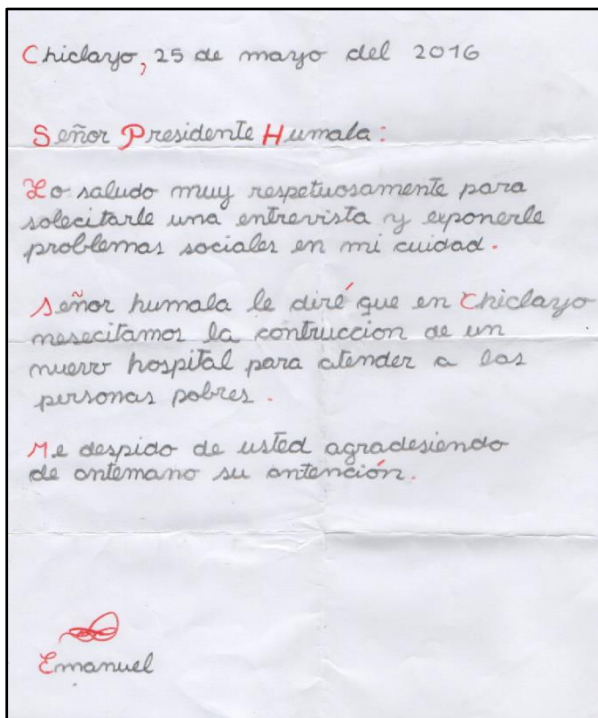 Chiclayo, 25 de mayo del 2016
Señor Presidente Humala:
Lo saludo muy respetuosamente para
solecitarle una entrevista y exponerle
problemas sociales en mi cuidad.
Señor humala le diré que en Chiclayo
nesecitamos la contruccion de un
nuevo hospital para atender a las
personas pobres.
Me despido de usted agradesiendo
de antemano su antención.
Emanuel